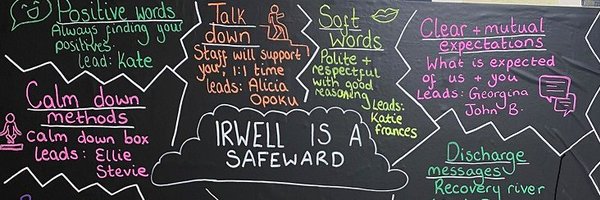 Positive words
Always finding your
positives.
lead: Kate
Talk
down
Staff will support
you, 1:1 time
leads: Alicia
Opoku
Soft
words
Polite +
respectful
with good
reasoning
Leads:
Katie
frances
Clear + mutual
expectations
What is expected
of us + you
Leads: Georgina
John B.
Calm down
methods
calm down box
leads: Ellie
Stevie
IRWELL IS A
SAFEWARD
Discharge
messages
Recovery river